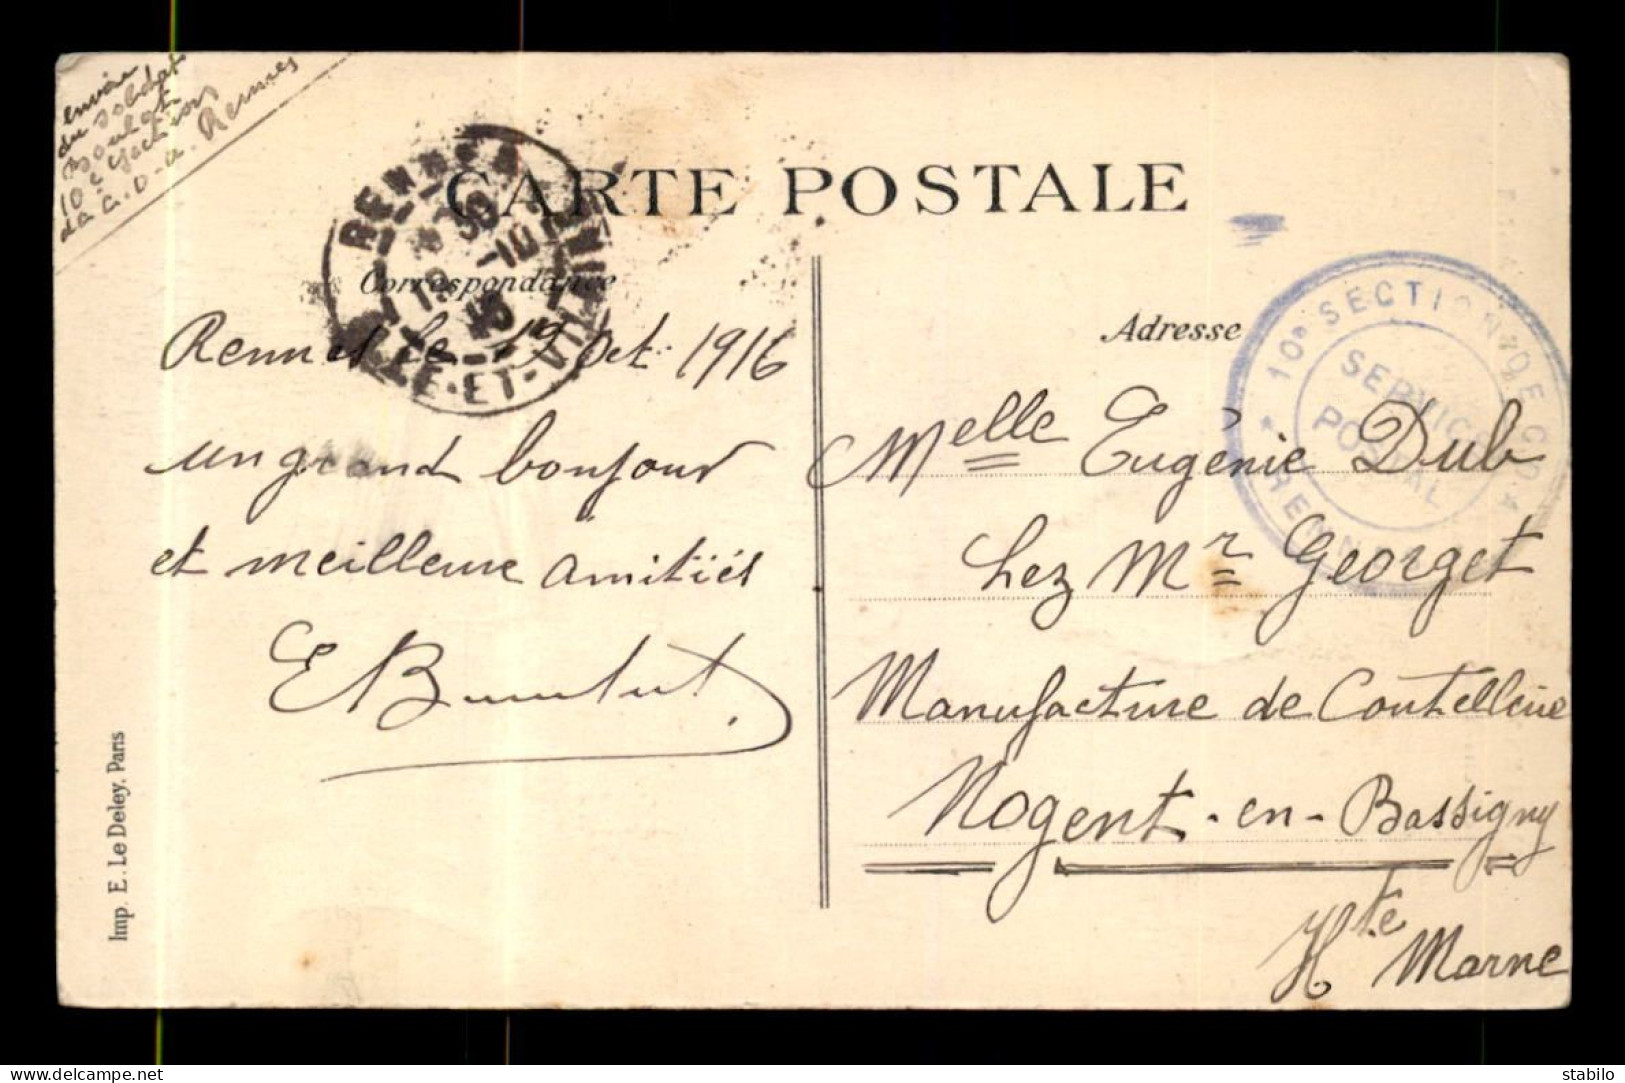 envoie
du soldat
10e Section
de C.O.A. Rennes
CARTE POSTALE
RENNES
ILLE-ET-VILAINE
Correspondance
Adresse
10e SECTION DE C.O.A
SERVICE
POSTAL
RENNES
Rennes le 19 Oct 1916
un grand bonjour
et meilleure amitiés
Melle Eugénie Dub
chez Mr Georget
Manufacture de Coutellerie
Nogent-en-Bassigny
Hte Marne
Imp. E. Le Deley, Paris
delcampe.net
stabilo